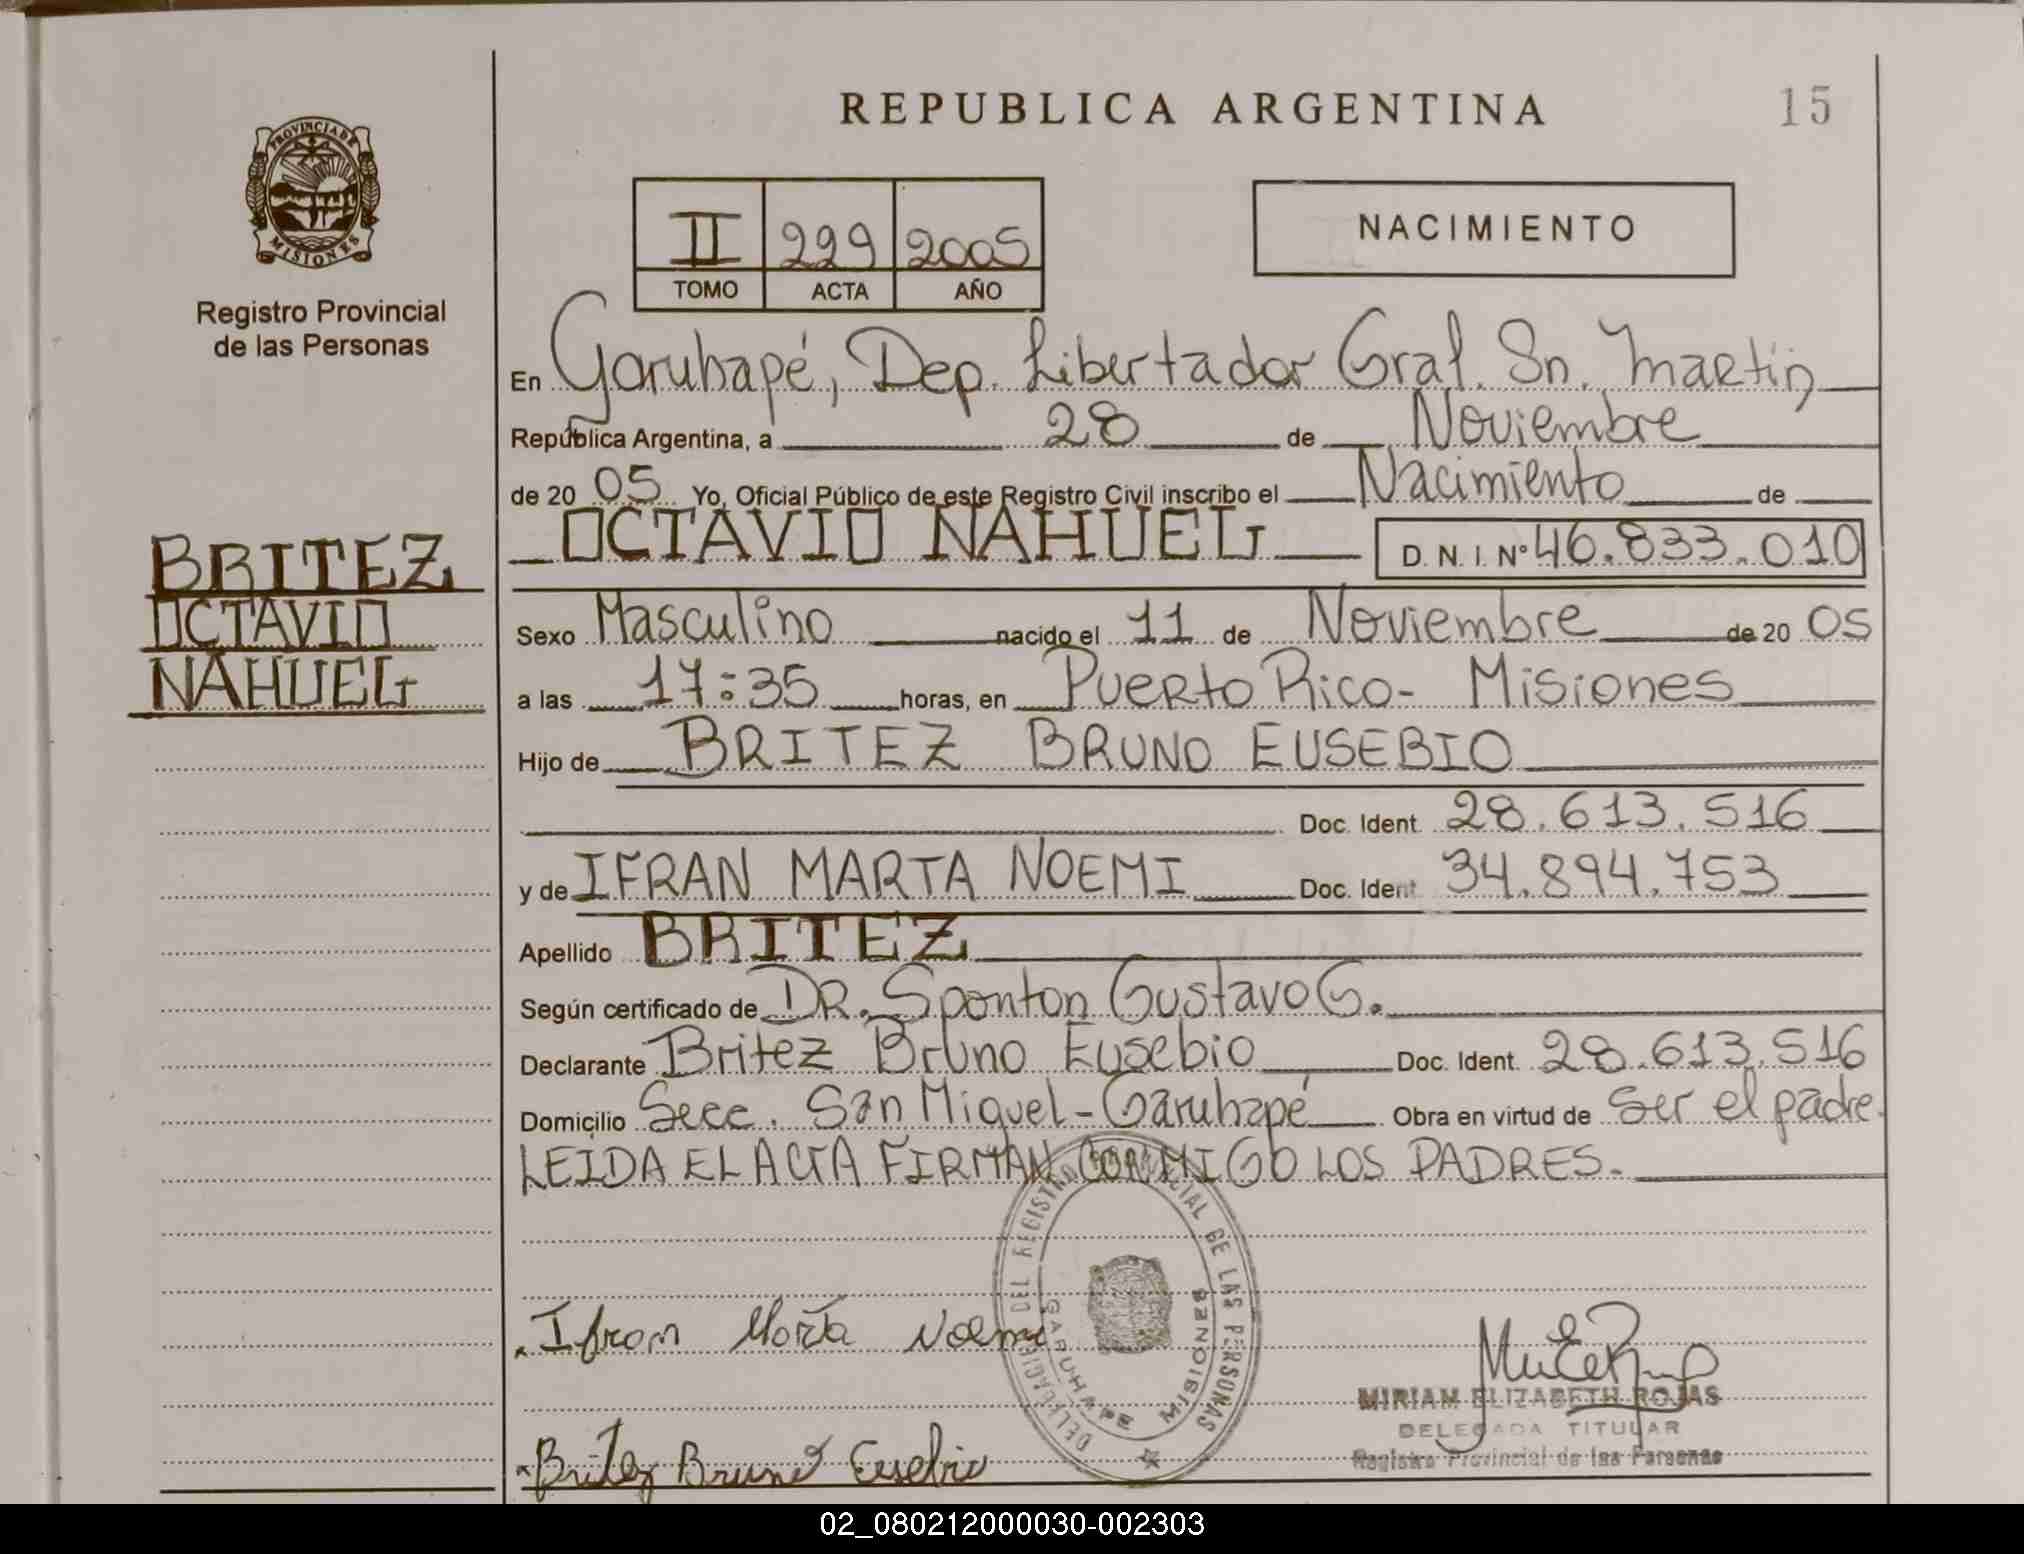 REPUBLICA ARGENTINA
15
PROVINCIA DE
MISIONES
Registro Provincial
de las Personas
II 229 2005
TOMO ACTA AÑO
NACIMIENTO
En Garuhapé, Dep. Libertador Gral. Sn. Martín,
República Argentina, a 28 de Noviembre
de 20 05 Yo, Oficial Público de este Registro Civil inscribo el Nacimiento de
OCTAVIO NAHUEL D. N. I. Nº 46.833.010
BRITEZ
OCTAVIO
NAHUEL
Sexo Masculino nacido el 11 de Noviembre de 20 05
a las 17:35 horas, en Puerto Rico - Misiones
Hijo de BRITEZ BRUNO EUSEBIO
Doc. Ident. 28.613.516
y de IFRAN MARTA NOEMI Doc. Ident. 34.894.753
Apellido BRITEZ
Según certificado de DR. Sponton Gustavo G.
Declarante Britez Bruno Eusebio Doc. Ident. 28.613.516
Domicilio Secc. San Miguel - Garuhapé Obra en virtud de Ser el padre.
LEIDA EL ACTA FIRMAN CONMIGO LOS PADRES.
DELEGACION DEL REGISTRO PROVINCIAL DE LAS PERSONAS
GARUHAPE MISIONES
Ifran Marta Noemi
MIRIAM ELIZABETH ROJAS
DELEGADA TITULAR
Registro Provincial de las Personas
Britez Bruno Eusebio
02_080212000030-002303